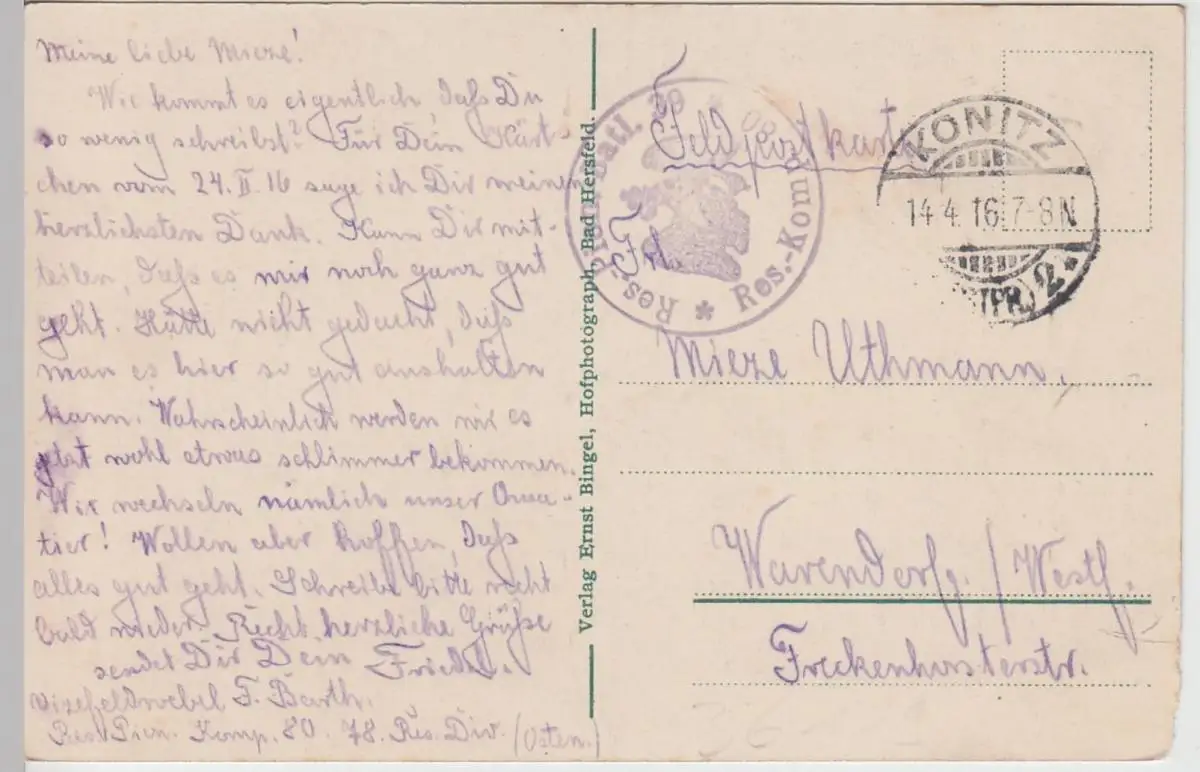 Meine liebe Mieze!
Wie kommt es eigentlich, daß Du
so wenig schreibst? Für Dein Kärt-
chen vom 24. II. 16 sage ich Dir meinen
herzlichsten Dank. Kann Dir mit-
teilen, daß es mir noch ganz gut
geht. Hätte nicht gedacht, daß
man es hier so gut aushalten
kann. Wahrscheinlich werden wir es
jetzt wohl etwas schlimmer bekommen.
Wir wechseln nämlich unser Quar-
tier! Wollen aber hoffen, daß
alles gut geht. Schreibe bitte recht
bald wieder. Recht herzliche Grüße
sendet Dir Dein Friedel.
Vizefeldwebel F. Barth.
Res. Pion. Komp. 80. 78. Res. Div. (Osten.)
Verlag Ernst Bingel, Hofphotograph, Bad Hersfeld.
Feldpostkarte
Res.- Batl. 36 * Res.-Komp. 80 *
KONITZ
14.4.16.7-8N
(WESTPR.) 2 *
Frl.
Mieze Uthmann,
Warendorf. / Westf.
Freckenhorsterstr.